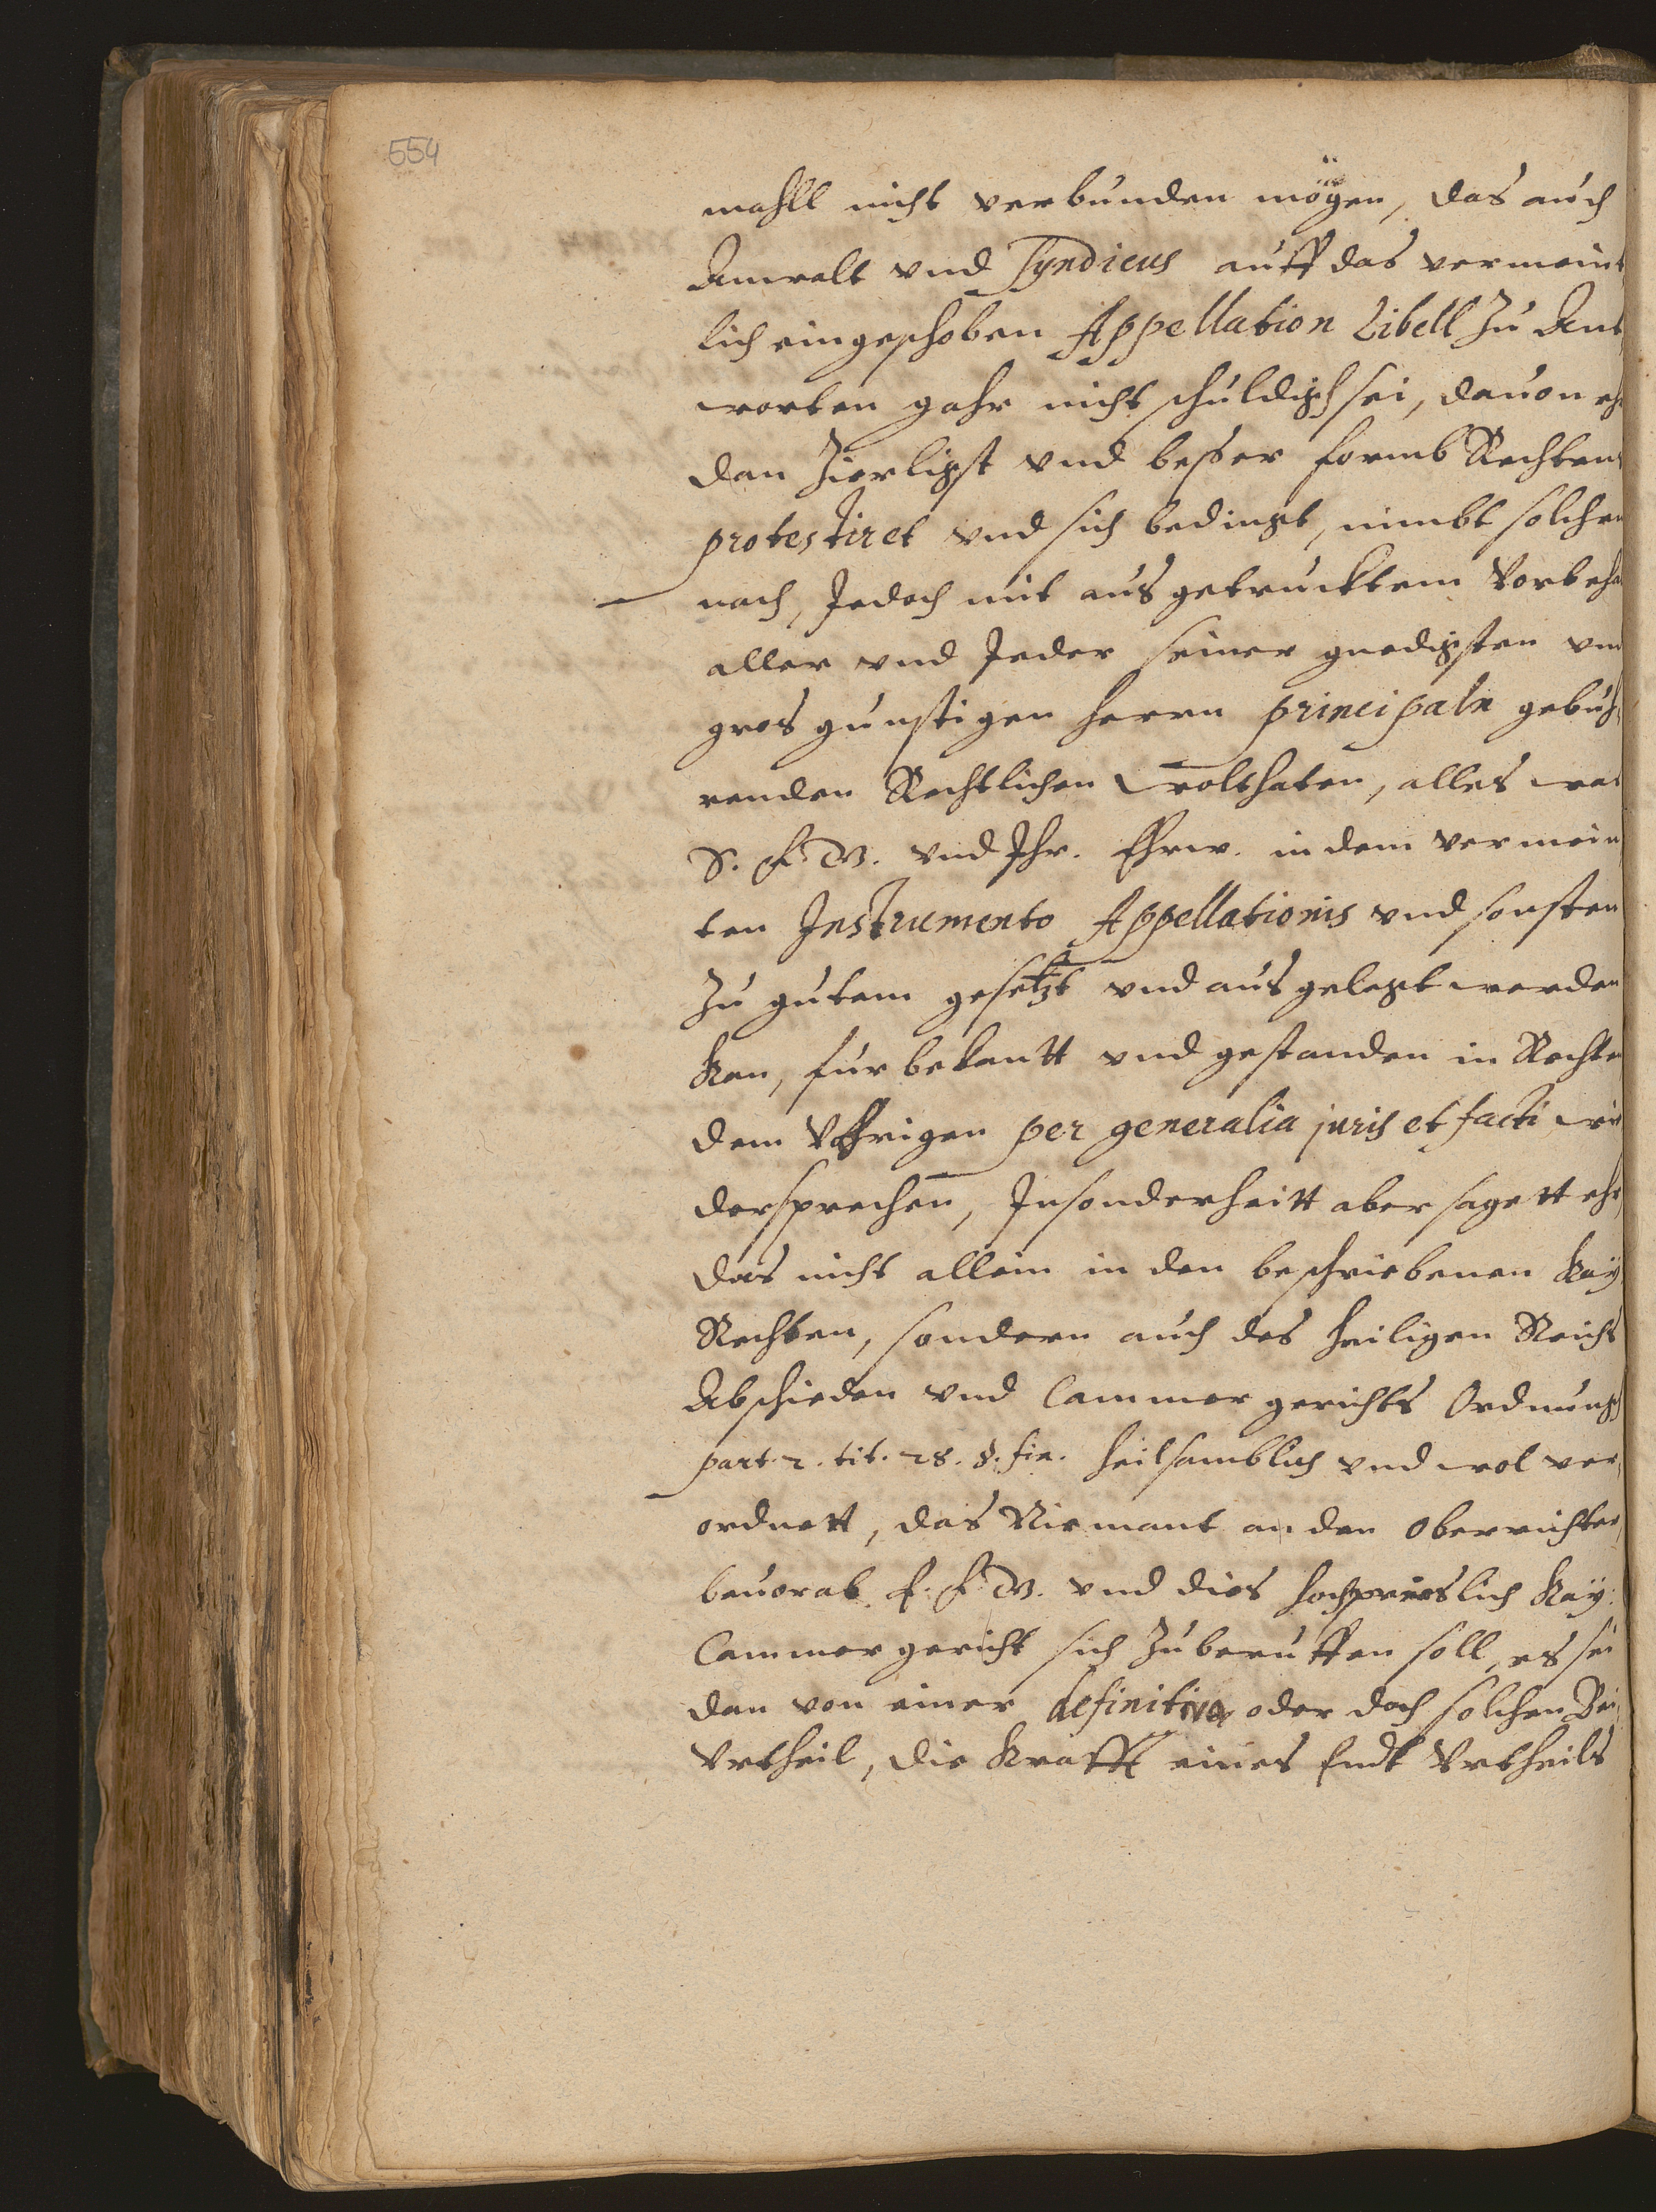 554
mahll nicht verbunden mögen, das auch
Anwalt vnd Syndicus auff das vermeint
lich eingeschoben Appellation Libell zu Ant
worten gahr nicht schuldigh sei, dauon eh
dan zierligst vnd besser formb Rechtens
protestiret vnd sich bedingt, nimbt solchen
nach, Jedoch mit ausgetrucktem Vorbeha
aller vnd Jeder seiner gnedigsten vnd
gros gunstigen herrn principaln gebuh
renden Rechtlichen wolthaten, alles was
S. F. W. vnd Ihr. Ehrw. in dem vermein
ten Instrumento Appellationis vnd sonsten
zu gutem gesetzt vnd ausgelegt werden
kan, fur bekantt vnd gestanden in Rechten
dem Vbrigen per generalia juris et facti wie
dersprechen, Insonderheitt aber sagett ehr
das nicht allein in den beschriebenen Kaÿ
Rechten, sondern auch des heiligen Reichs
Abschieden vnd Cammer gerichts Ordnungh
part. 2. tit. 28. §. fin. heilsamblich vnd wol ver
ordnett, das Niemant an den Oberrichter
beuorab E. F. W. vnd dies hochpreislich Kaÿ:
Cammer gericht sich zu beruffen soll, es sei
dan von einer definitiva, oder doch solchen Bei
Vrtheil, die Krafft eines Endt Vrtheils